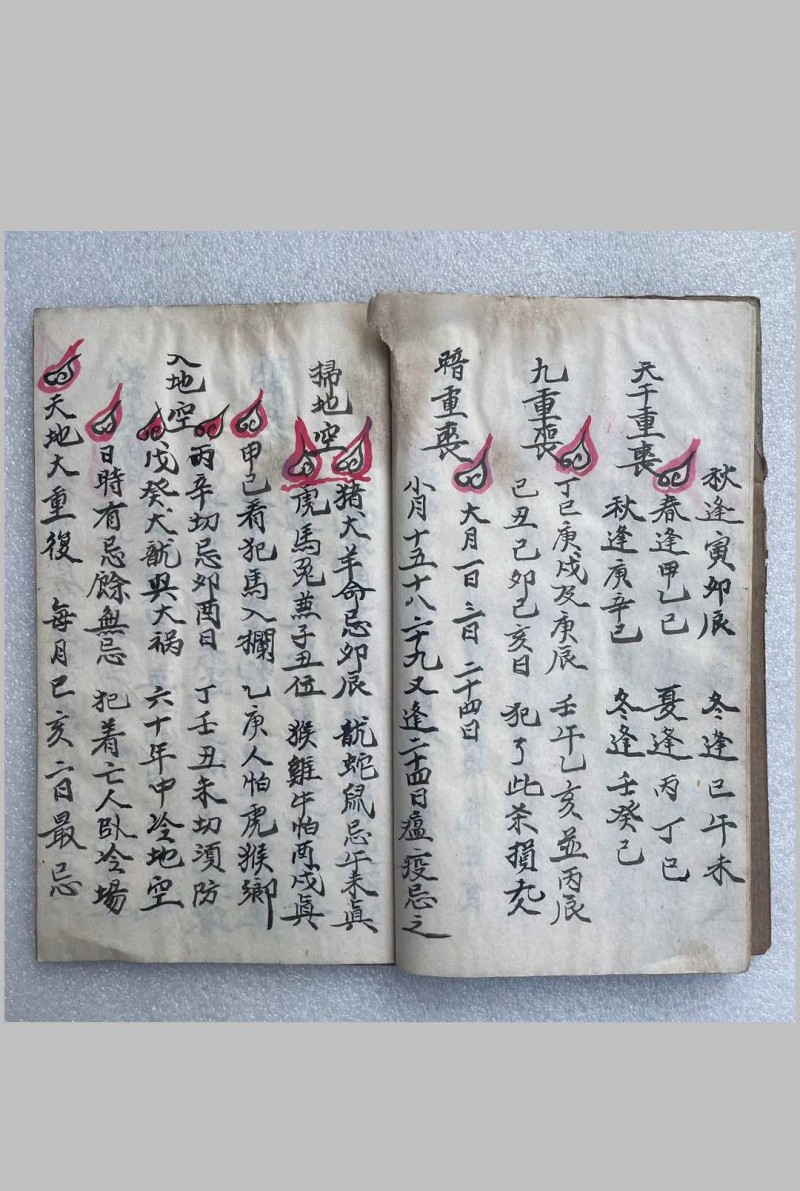 秋逢寅卯辰 冬逢巳午未
天干重喪
春逢甲乙巳 夏逢丙丁巳
秋逢庚辛巳 冬逢壬癸巳
九重喪
丁巳庚戌及庚辰 壬午乙亥並丙辰
己丑己卯己亥日 犯了此杀損
暗重喪
大月一日三日二十四日
小月十五十八二十九又逢二十四日瘟疫忌之
掃地空
猪犬羊命忌卯辰 龍蛇鼠忌午未眞
虎馬兎兼子丑位 猴雞牛怕酉戌眞
入地空
甲己看犯馬入欄 乙庚人怕虎猴鄉
丙辛切忌卯酉日 丁壬丑未切須防
戊癸犬龍與大祸 六十年中冷地空
日時有忌餘無忌 犯着亡人臥冷場
天地大重復 每月巳亥二日最忌